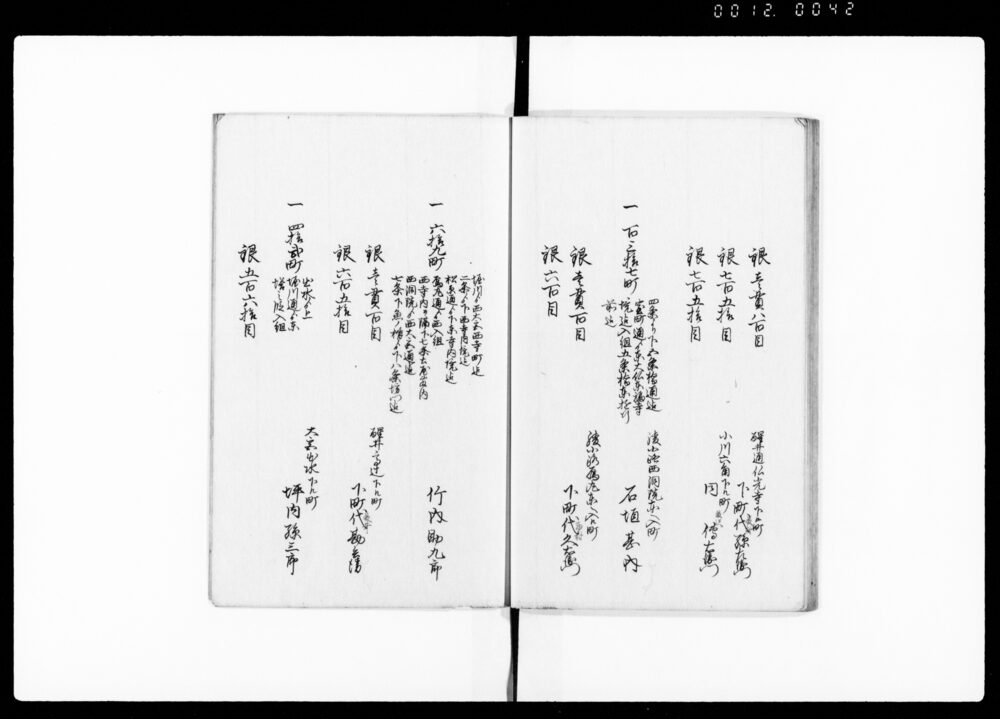 0012 0042
銀壱貫八百目
銀七百五拾目
銀七百五拾目
醒井通仏光寺下ル町
下町代 孫左衛門
小川六角下ル町
同 傳右衛門
一 百三拾七町
四条ゟ下六条橋通迄
室町通ゟ東大仏
境迄入組五条橋東
前迄
銀壱貫百目
銀六百目
綾小路西洞院東へ入町
石垣甚内
綾小路烏丸東へ入町
下町代 久左衛門
一 六拾九町
堀川ゟ西大宮西寺町迄
二条ゟ下西寺内境迄
松原通ゟ下東寺内境迄
烏丸通ゟ西入組
西寺内ゟ隔下七条
西洞院ゟ西大宮通迄
七条下魚ノ棚ゟ下八条坊門迄
銀壱貫百目
銀六百五拾目
竹内助九郎
醒井高辻下ル町
下町代 勘兵衛
一 四拾弐町
出水ゟ上
堀川通ゟ東
入組
銀五百六拾目
大宮出水下ル町
坪内孫三郎